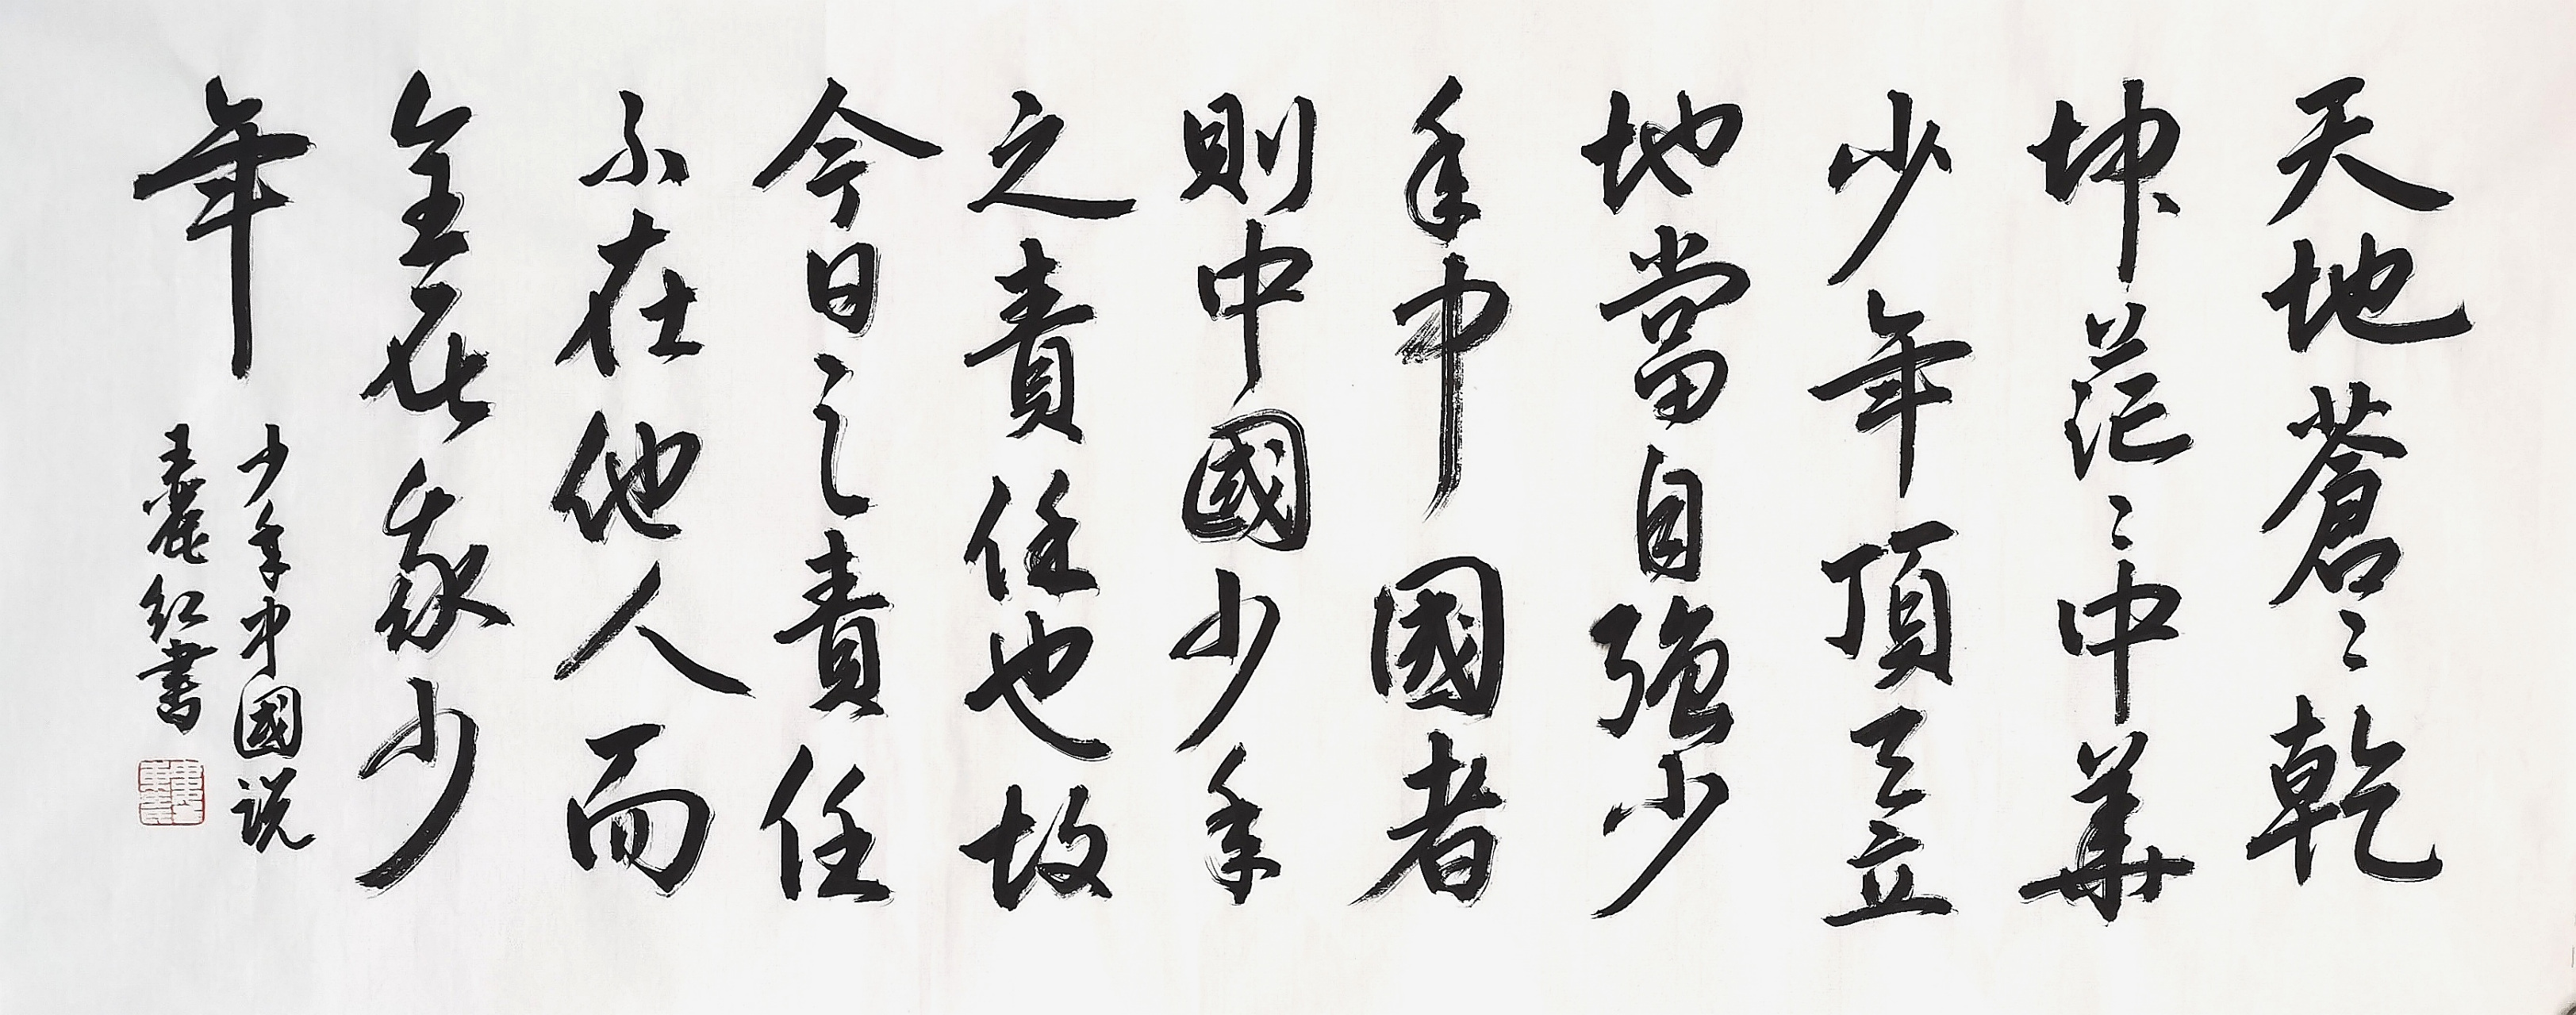 天地蒼〻乾
坤茫〻中華
少年頂天立
地當自強少
年中國者
則中國少年
之責任也故
今日之責任
不在他人而
全在我少
年
少年中國说
王麗红書